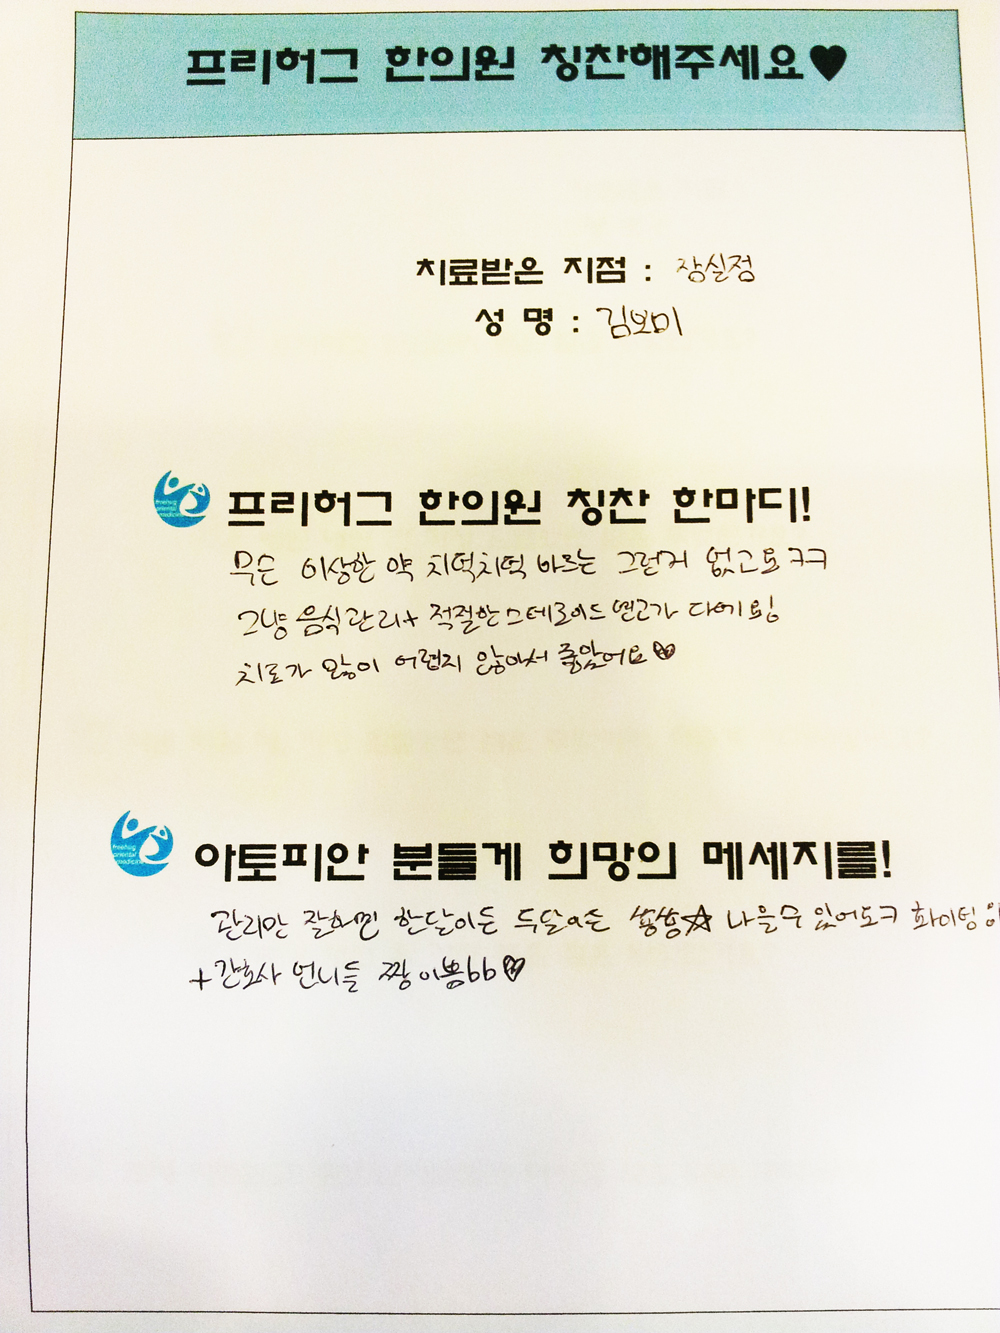 프리허그 한의원 칭찬해주세요♥
치료받은 지점 : 잠실점
성 명 : 김보미
freehug oriental medicine
프리허그 한의원 칭찬 한마디!
무슨 이상한 약 치덕치덕 바르는 그런거 없고요 ㅋㅋ
그냥 음식관리+ 적절한 스테로이드 연고가 다에요
치료가 많이 어렵지 않아서 좋았어요♡
freehug oriental medicine
아토피안 분들게 희망의 메세지를!
관리만 잘하면 한달이든 두달이든 쑝쑝☆ 나을수 있어요ㅋ 화이팅
+간호사 언니들 짱이쁨bb♡